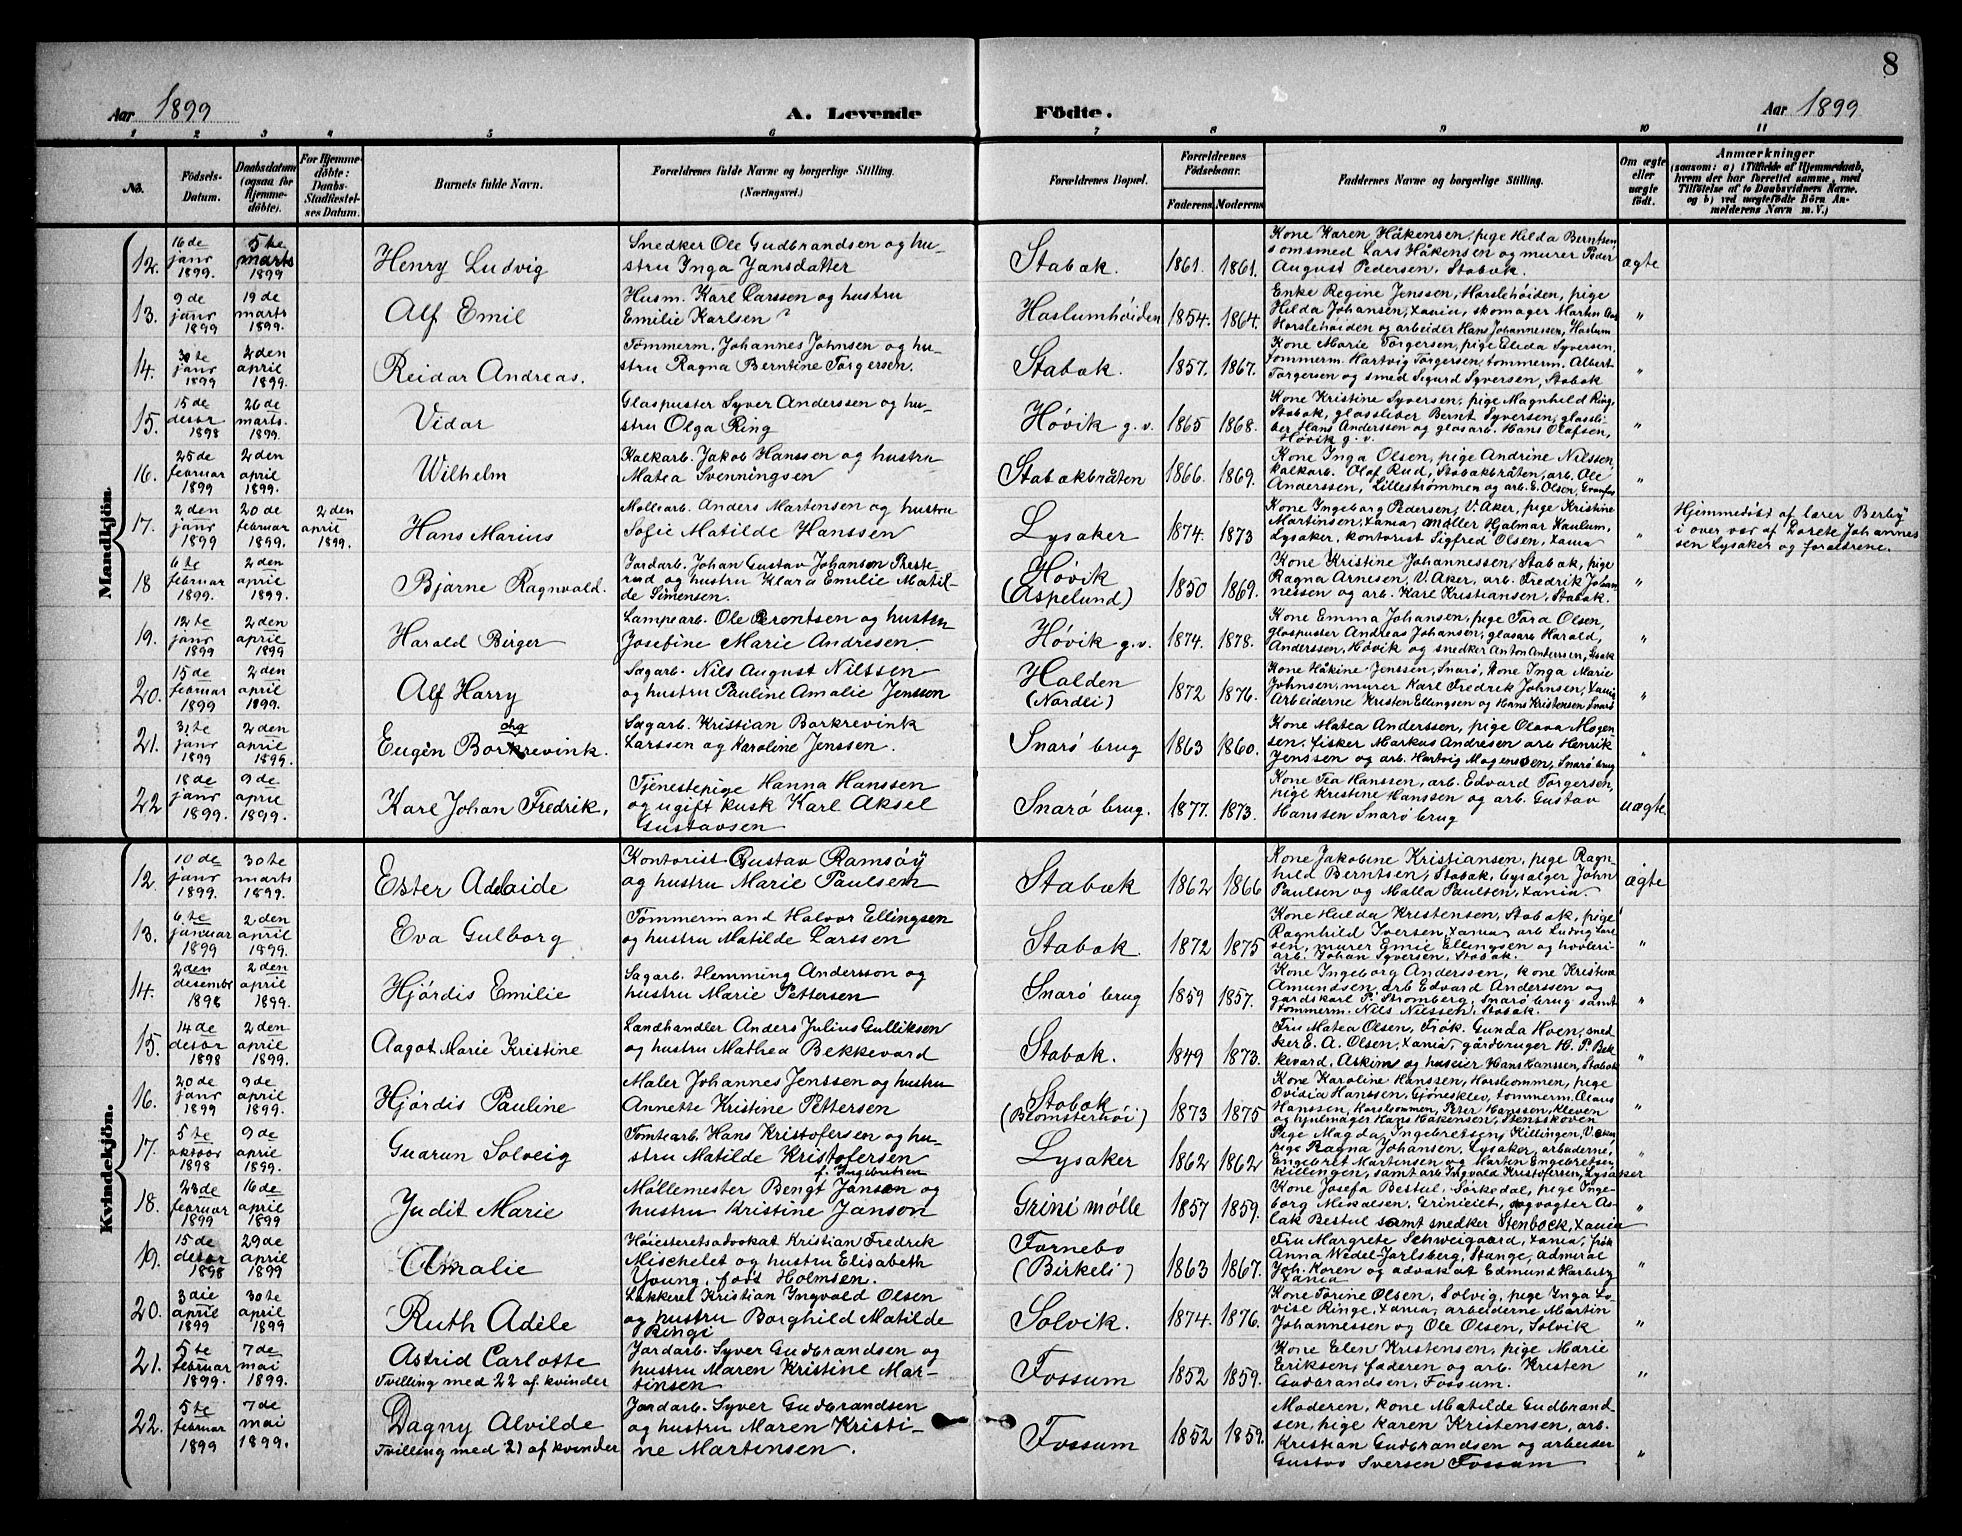 8
Aar 1899 A. Levende Födte. Aar 1899
1 2 3 4 5 6 7 8 9 10 11
No. Födsels-Datum. Daabsdatum (ogsaa for Hjemmedöbte). For Hjemmedöbte: Daabs-Stadfæstelses Datum. Barnets fulde Navn. Forældrenes fulde Navne og borgerlige Stilling. (Næringsvei.) Forældrenes Bopæl. Forældrenes Födselsaar. Faderens Moderens Faddernes Navne og borgerlige Stilling. Om ægte eller uægte födt. Anmærkninger (saasom: a) i Tilfælde af Hjemmedaab, hvem der har forrettet samme, med Tilföielse af to Daabsvidners Navne. og b) ved uægtefödte Börn Anmelderens Navn m. V.)
Mandkjön.
12. 16de janr 1899. 5te marts 1899 Henry Ludvig Snedker Ole Gudbrandsen og hustru Inga Jansdatter Stabæk. 1861. 1861. Kone Karen Håkensen, pige Hilda Berntsen, somsmed Lars Håkensen og murer Peder August Pedersen, Stabæk. ægte
13. 9de janr 1899 19de marts 1899. Alf Emil Husm. Karl Larssen og hustru Emilie Karlsen Haslumhøiden 1854. 1864. Enke Regine Jenssen, Horslehøiden, pige Hilda Johansen, Xania, skomager Martin Horslehøiden og arbeider Hans Johannessen, Haslum "
14. 30te janr 1899 2den april 1899. Reidar Andreas. Tømmerm. Johannes Johnsen og hustru Ragna Berntine Torgersen. Stabæk. 1857. 1867. Kone Marie Torgersen, pige Elida Syversen, tømmerm. Hartvig Torgersen, tømmerm. Albert Torgersen og smed Sigurd Syversen, Stabæk "
15. 15de decbr 1898 26de marts. 1899. Vidar Glaspuster Syver Anderssen og hustru Olga Ring Høvik g.v. 1865 1868. Kone Kristine Syversen, pige Magnhild Ring, Stabæk, glassliber Bernt Syversen, glassliber Hans Anderssen og glasarb. Hans Olafsen, Høvik g.v. "
16. 25de februar 1899 2den april 1899. Wilhelm Kalkarb. Jakob Hanssen og hustru Matea Svenningsen Stabækbråten 1866. 1869. Kone Inga Olsen, pige Andrine Nilssen, kalkarb. Olaf Rud, Stabækbråten, arb. Ole Anderssen, Lillestrømmen og arb. E. Olsen, "
17. 2den janr 1899 20de februar 1899. 2den april 1899. Hans Marius Møllearb. Anders Martensen og hustru Sofie Matilde Hanssen Lysaker 1874. 1873 Kone Ingeborg Pedersen, V. Aker, pige Kristine Martinsen, Xania, møller Hjalmar Haulum, Lysaker, kontorist Sigfred Olsen, Xania " Hjemmedøbt af lærer Berby i overvær af Dorete Johannessen Lysaker og forældrene.
18 6te februar 1899 2den april 1899. Bjarne Ragnvald. Jordarb. Johan Gustav Johanson Presterud og hustru Klara Emilie Matilde Simensen. Høvik (Aspelund) 1850 1869. Kone Kristine Johannessen, Stabæk, pige Ragna Arnesen, V. Aker, arb. Fredrik Johannessen og arb. Karl Kristiansen, Stabæk. "
19. 12te janr 1899 2den april 1899 Harald Birger Lampearb. Ole Berentsen og hustru Josefine Marie Andresen. Høvik g.v. 1874. 1878. Kone Emma Johansen, pige Tora Olsen, glaspuster Andreas Johansen, glasarb Harald Anderssen, Høvik og snedker Anton Anderssen, "
20. 15de februar 1899 2den april 1899. Alf Harry Sagarb. Nils August Nilssen og hustru Pauline Amalie Jenssen Halden (Nordli) 1872 1876. Kone Håkine Jenssen, Snarø, Kone Inga Marie Johnsen, murer Karl Fredrik Johnsen, Xania Arbeiderne Kristen Ellingsen og Hans Kristensen Snarø "
21. 31te janr 1899 2den april 1899 Eugén Borkrevink. Sagarb. Kristian Borkrevink Larssen og Karoline Jenssen. Snarø brug 1863 1860. Kone Matea Anderssen, pige Olava Mogensen, fisker Markus Andresen arb Henrik Jenssen og arb. Hartvig Mogensen, Snarø brug "
22 18de janr 1899. 9de april 1899. Karl Johan Fredrik, Tjenestepige Hanna Hanssen og ugift kusk Karl Aksel Gustavsen Snarø brug. 1877. 1873. Kone Tea Hanssen, arb. Edvard Torgersen, pige Kristine Hanssen og arb. Gustav Hanssen Snarø brug uægte
Kvindekjön.
12. 10de janr 1899. 30te marts 1899. Ester Adelaide Kontorist Gustav Ramsøy og hustru Marie Paulsen Stabæk 1862 1866 Kone Jakobine Kristiansen, pige Ragnhild Berntsen, Stabæk, bysælger John Paulsen og Malla Paulsen, Xania. ægte
13. 6te januar 1899 2den april 1899. Eva Gulborg Tømmermand Halvor Ellingsen og hustru Matilde Larssen Stabæk. 1872 1875 Kone Hulda Kristensen, Stabæk, pige Ragnhild Iversen, Xania, arb Ludvig Larsen, murer Emil Ellingsen og høvleriarb. Johan Syversen, Stabæk. "
14. 2den desembr 1898 2den april 1899. Hjórdis Emilie Sagarb. Hemming Andersson og hustru Marie Pettersen Snarø brug 1859 1857. Kone Ingeborg Anderssen, kone Kristine Amundsen, arb Edvard Anderssen og gårdskarl P. Strømberg, Snarø brug samt tømmerm. Nils Nilssen, Stabæk. "
15. 14de decbr 1898 2den april 1899. Aagot Marie Kristine Landhandler Anders Julius Gulliksen og hustru Mathea Bekkevard Stabæk. 1849 1873. Fru Matea Olsen, Frøk. Gunda Hoen, snedker E. A. Olsen, Xania, gårdbruger H. P. Bekkevard, Askim og huseier Hans Hanssen, Stabæk "
16. 20de janr 1899 9de april 1899. Hjórdis Pauline Maler Johannes Jenssen og hustru Annette Kristine Pettersen Stabæk (Blomsterhøi) 1873 1875 Kone Karoline Hanssen, pige Ovidia Hanssen, Gjønesklev, tømmerm. Hanssen, Peter Hanssen, Kleven og hjulmager Hans Håkensen, Stenskoven "
17. 5te oktobr 1898 9de april 1899. Gudrun Solveig Tomtearb. Hans Kristofersen og hustru Matilde Kristofersen f. Ingebretsen Lysaker 1862 1862 Pige Magda Ingebretsen, Killingen, V. Aker, pige Ragna Johansen, Lysaker, arbeiderne, Engebret Martensen og Marten Engebretsen Killingen, samt arb Ingvald Kristofersen, Lysaker "
18. 23de februar 1899 16de april 1899 Judit Marie Møllemester Bengt Janson og hustru Kristine Janson Grini mølle 1857 1859. Kone Josefa Bestul, Sørkedal, pige Ingeborg Mikalsen, Grinieiet, skogvogter Aslak Bestul samt snedker Stenbock, Xania "
19. 15de decbr 1898 29de april 1899 Amalie Høiesteretsadvokat Kristian Fredrik Mischelet og hustru Elisabeth Young, født Holmsen. Fornebo (Birkeli) 1863 1867. Fru Margrete Schweigaard, Xania, frøk Anna Wedel-Jarlsberg, Stange, admiral Joh. Koren og advokat Edmund Harbitz Xania "
20. 3die april 1899 30te april 1899 Ruth Adèle Lakkerer Kristian Ingvald Olsen og hustru Borghild Matilde Ringi Solvik. 1874. 1876. Kone Torine Olsen, Solvig, pige Inga Lovise Ringe, Xania, arbeiderne Martin Johannessen og Ole Olsen, Solvik "
21. 5te februar 1899. 7de mai 1899. Astrid Carlotte Tvilling med 22 af kvinder Jordarb. Syver Gudbrandsen og hustru Maren Kristine Martinsen Fossum 1852 1859. Kone Elen Kristensen, pige Marie Eriksen, faderen og arb. Kristen Gudbrandsen, Fossum. "
22. 5te februar 1899 7de mai 1899. Dagny Alvilde Tvilling med 21 af kvinder Jordarb. Syver Gudbrandsen og hustru Maren Kristine Martensen. Fossum 1852 1859. Moderen, kone Matilde Gudbrandsen, pige Karen Kristensen, arb. Kristian Gudbrandsen og arbeider Gustav Iversen Fossum "